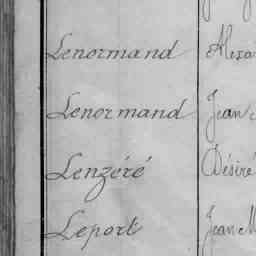 Lenormand Alexa
Lenormand Jean
Lenzéré Désiré
Leport Jean M